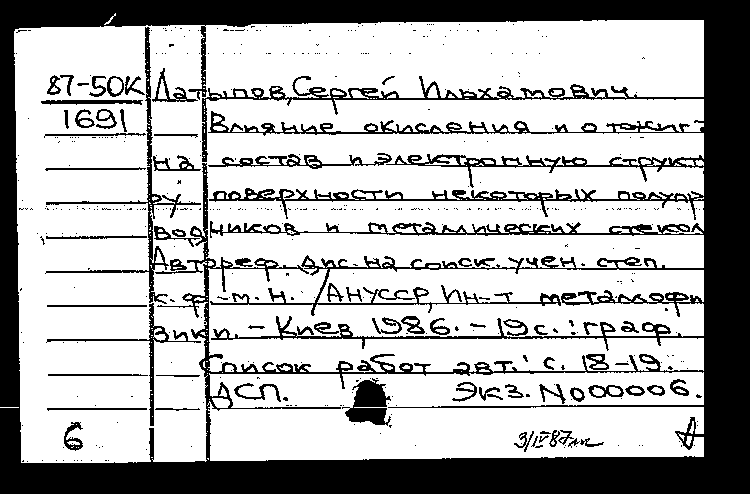 87-50К Латыпов, Сергей Ильхамович.
1691 Влияние окисления и отжига
на состав и электронную структ
ру поверхности некоторых полупр
водников и металлических стекол
Автореф. дис. на соиск. учен. степ.
к. ф.-м. н. / АН УССР, Ин-т металлофи
зики. - Киев, 1986. - 19 с. : граф.
Список работ авт.: с. 18-19.
ДСП. Экз. N 000006.
6 3/IV 87